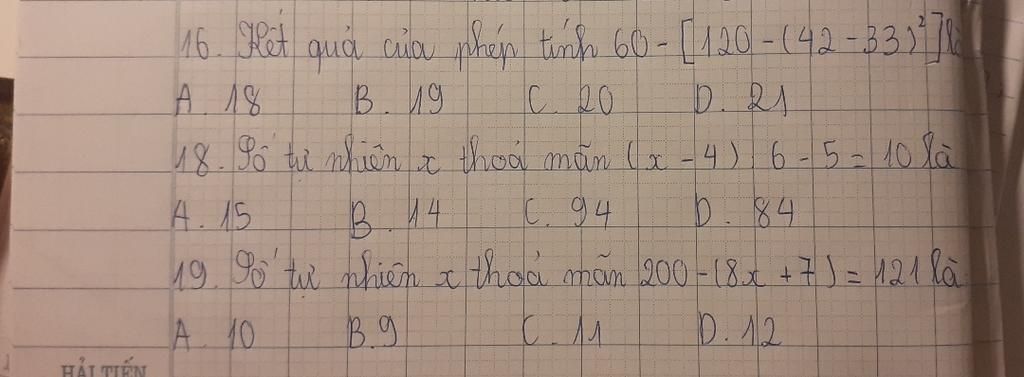 16. Kết quả của phép tính 60 - [120 - (42 - 33)²] là
A. 18 B. 19 C. 20 D. 21
18. Số tự nhiên x thoả mãn (x - 4) : 6 - 5 = 10 là
A. 15 B. 14 C. 94 D. 84
19. Số tự nhiên x thoả mãn 200 - (8x + 7) = 121 là
A. 10 B. 9 C. 11 D. 12
HẢI TIẾN